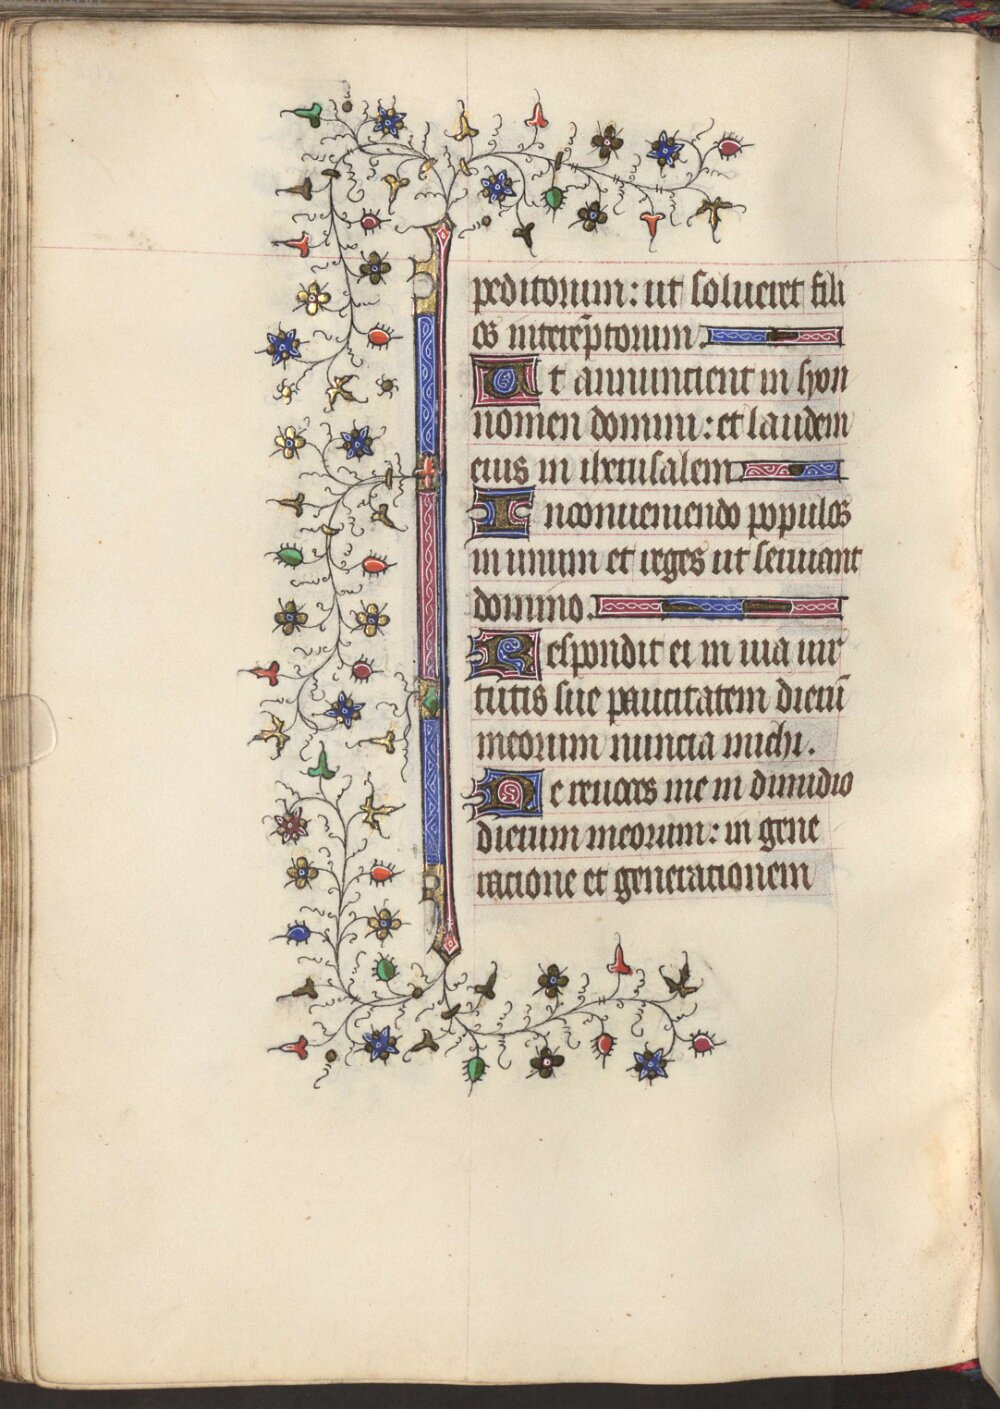 peditorum: ut solueret fili
os interẽptorum.
Ut annuncient in syon
nomen domini: et laudem
eius in iherusalem
In conueniendo populos
in unum et reges ut seruiant
domino.
Respondit ei in uia uir
tutis sue paucitatem dierũ
meorum nuncia michi.
Ne reuoces me in dimidio
dierum meorum: in gene
ratione et generationem